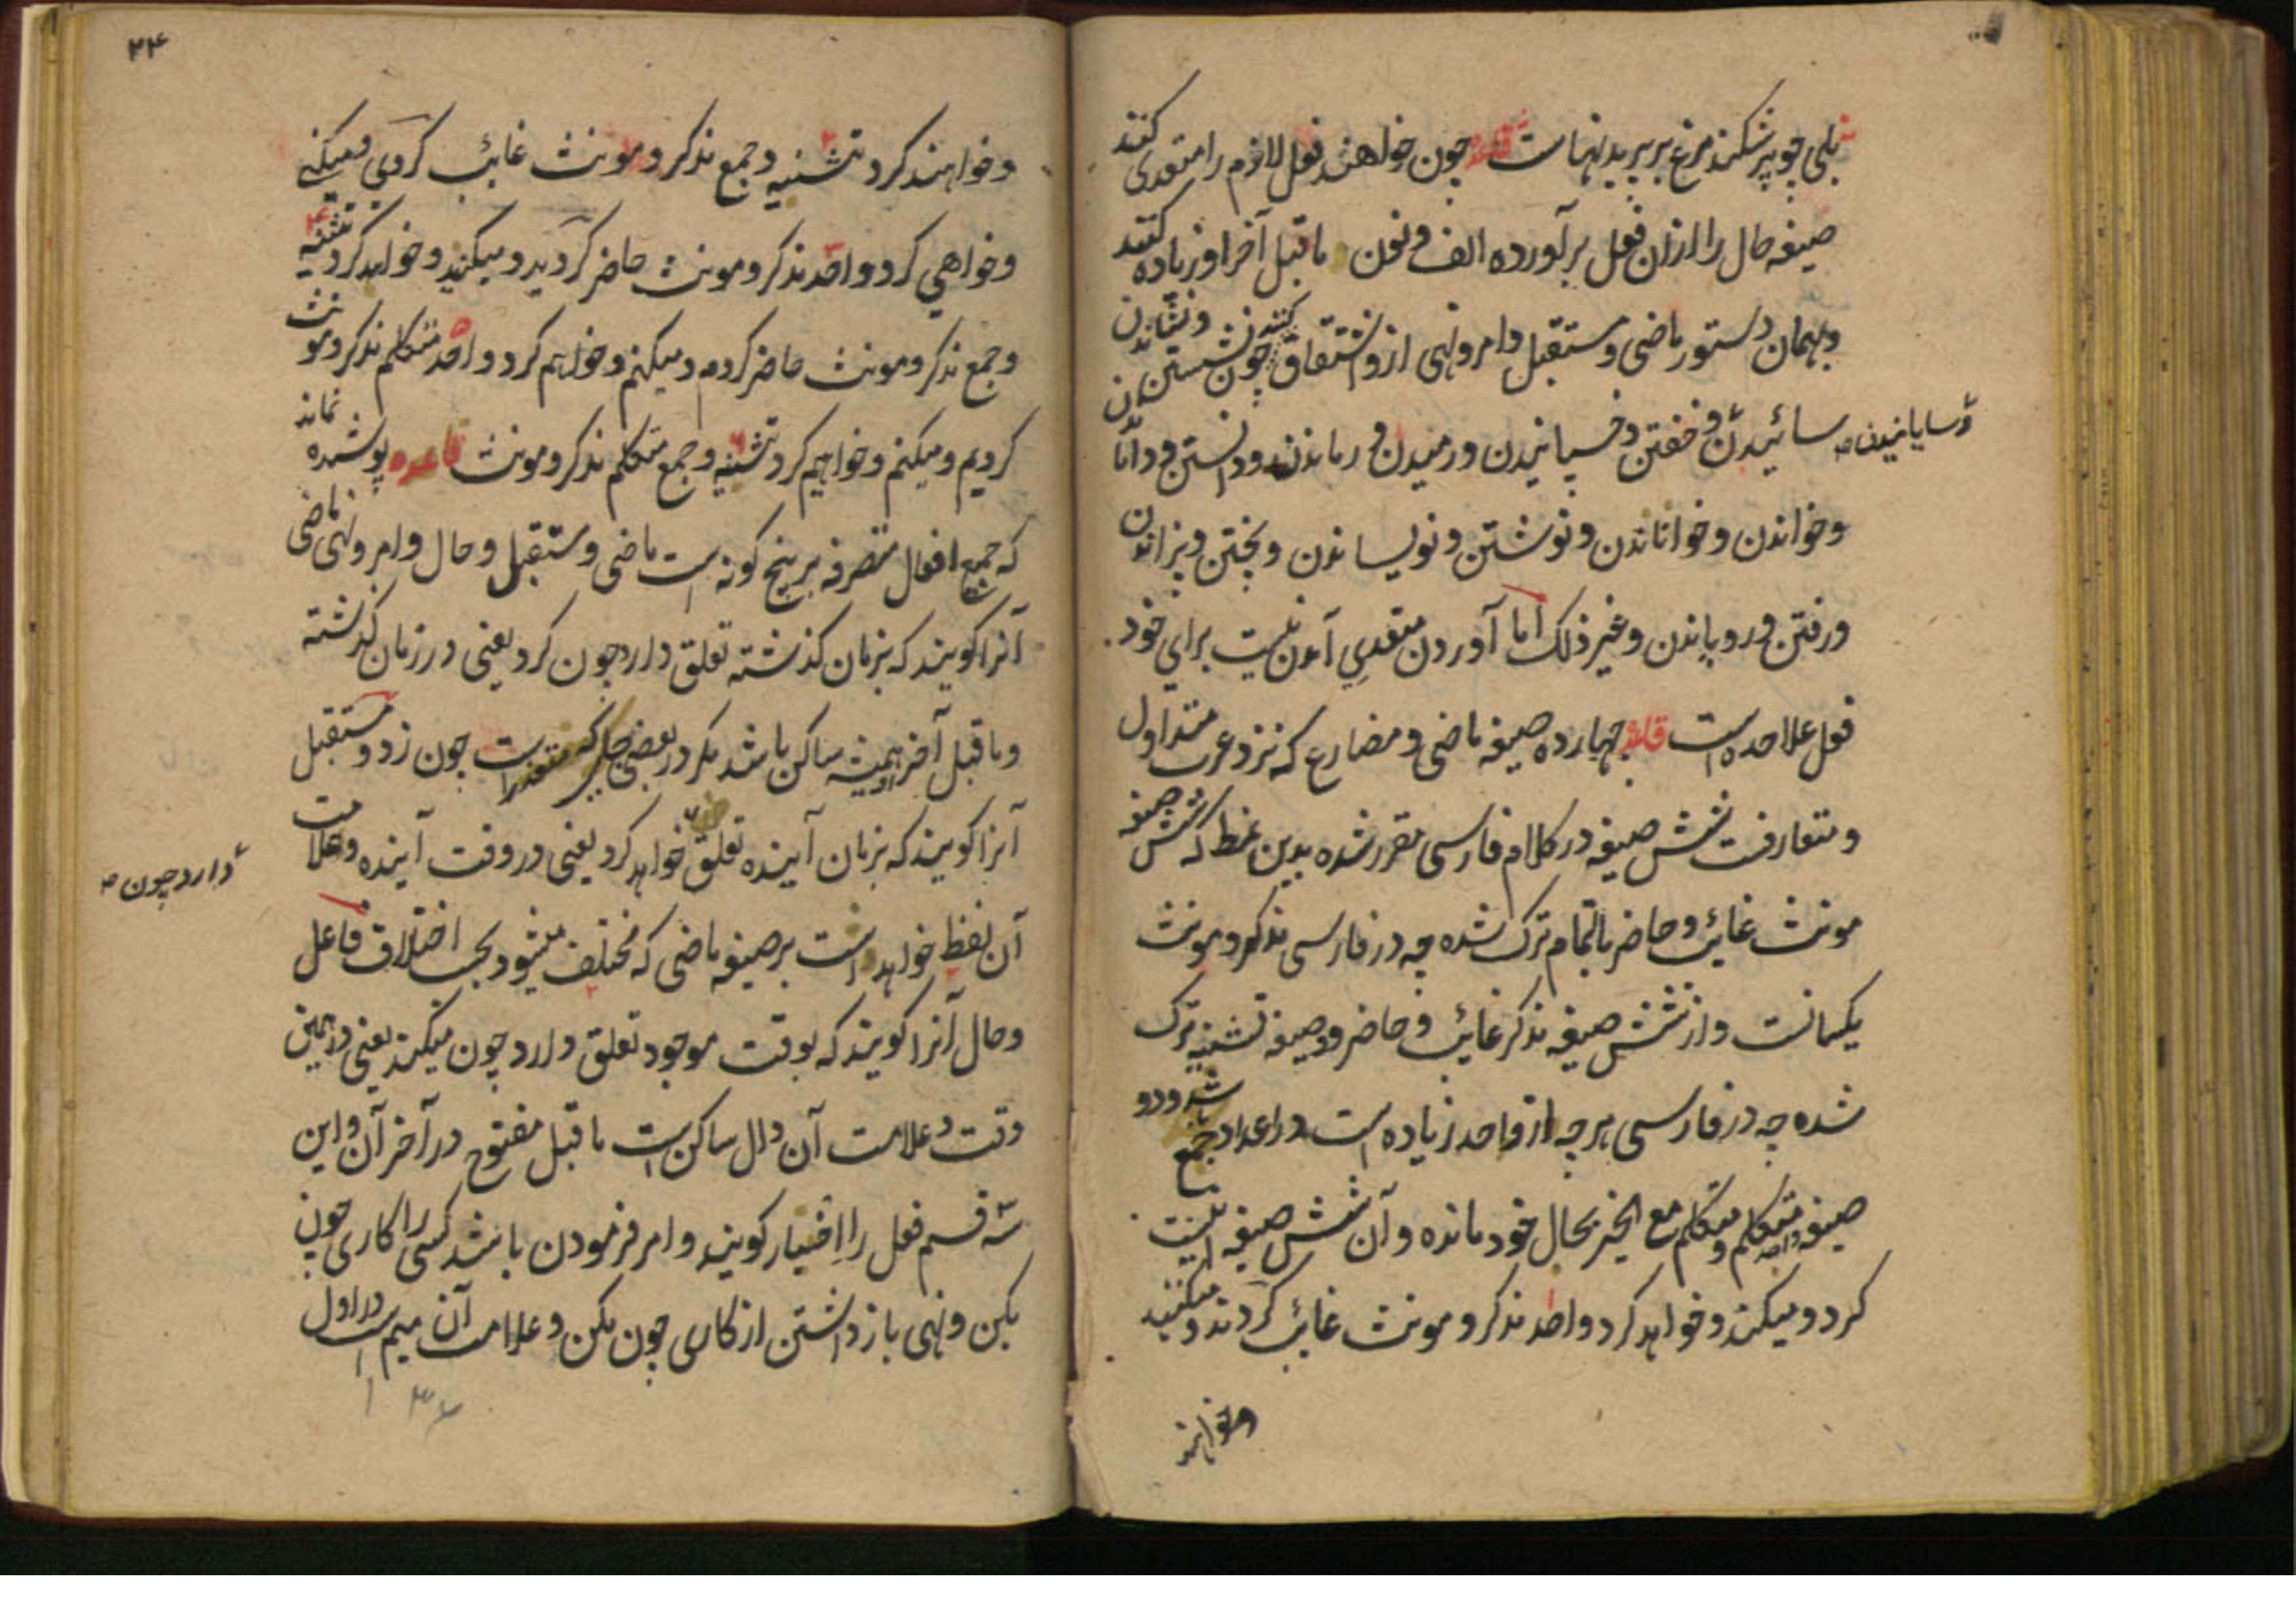 بلی چو پر شکند مرغ بر پریدنهاست قاعده چون خواهند فعل لازم را متعدی کنند
صیغه حال را ازان فعل برآورده الف و نون ماقبل آخر او زیاده کنند
و بهمان دستور ماضی و مستقبل و امر و نهی ازو اشتقاق کنند چون نشستن و نشاندن
سائیدن و سایانیدن و خفتن و خسپانیدن و رمیدن و رماندن و دانستن و
و خواندن و خواناندن و نوشتن و نویساندن و پختن و پزاندن
و رفتن و روپاندن و غیر ذلک اما آوردن متعدی آمدن نیست برای خود
فعل علاحده است قاعده چهارده صیغه ماضی و مضارع که نزد عرب متداول
و متعارفست شش صیغه در کلام فارسی مقرر شده بدین نمط که شش صیغه
مونث غائب و حاضر بالتمام ترک شده چه در فارسی مذکر و مونث
یکسانست و از شش صیغه مذکر غائب و حاضر دو صیغه تثنیه ترک
شده چه در فارسی هرچه از واحد زیاده است در اعداد جمع شد و دو
صیغه متکلم واحد و متکلم مع الغیر بحال خود مانده و آن شش صیغه اینست
کرد و میکند و خواهد کرد واحد مذکر و مونث غائب کردند و میکنند
و خواهند
۴۴
و خواهند کرد تثنیه و جمع مذکر و مونث غائب کردی و میکنی
و خواهی کرد واحد مذکر و مونث حاضر کردید و میکنید و خواهید کرد تثنیه
و جمع مذکر و مونث حاضر کردم و میکنم و خواهم کرد واحد متکلم مذکر و مونث
کردیم و میکنیم و خواهیم کرد تثنیه و جمع متکلم مذکر و مونث قاعده پوشیده نماند
که جمیع افعال متصرفه بر پنج کونه است ماضی و مستقبل و حال و امر و نهی ماضی
آنرا کویند که بزمان کذشته تعلق دارد چون کرد یعنی در زمان کذشته
و ماقبل آخر همیشه ساکن باشد مکر در بعضی جا که متعذر است چون زد و مستقبل
آنرا کویند که بزمان آینده تعلق دارد چون خواهد کرد یعنی در وقت آینده و علامت
آن لفظ خواهد است بر صیغه ماضی که مختلف میشود بحسب اختلاف فاعل
و حال آنرا کویند که بوقت موجود تعلق دارد چون میکند یعنی در همین
وقت و علامت آن دال ساکن است ماقبل مفتوح در آخر آن و این
سه قسم فعل را اخبار کویند و امر فرمودن باشد کسی را کاری چون
بکن و نهی باز داشتن از کاری چون مکن و علامت آن میم است در اول